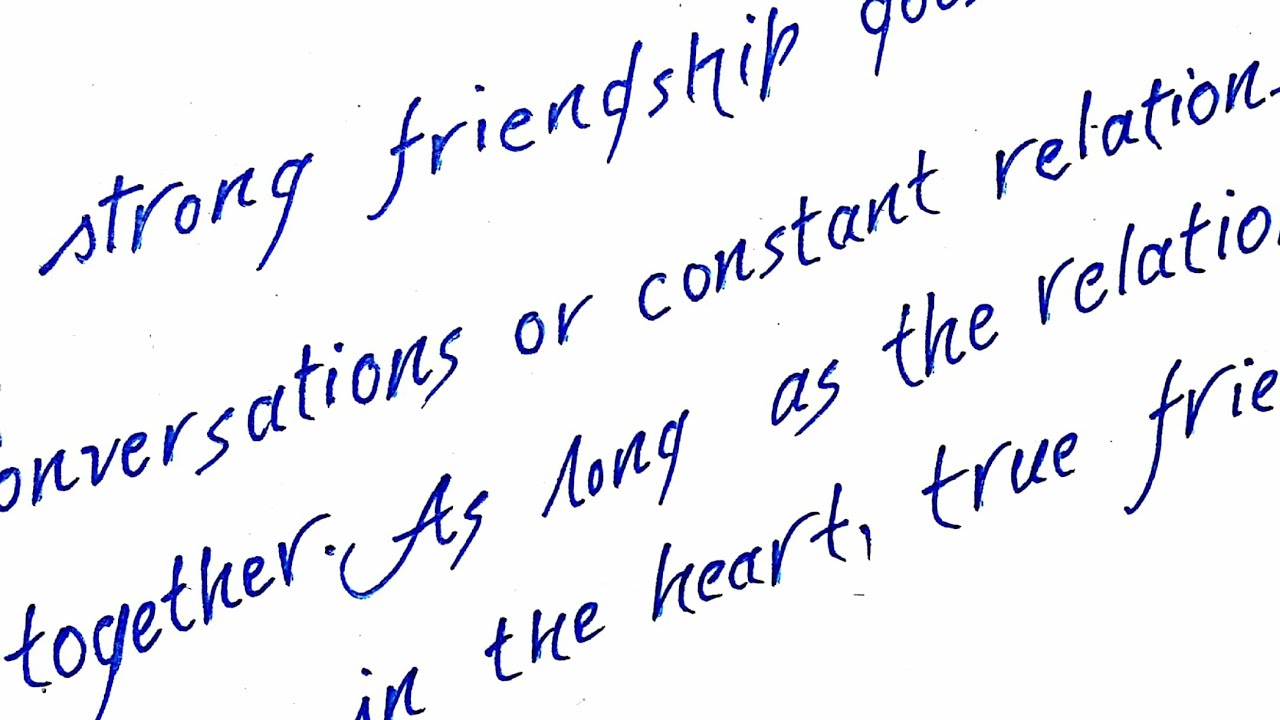 strong friendship
conversations or constant relation-
together. As long as the
in the heart, true